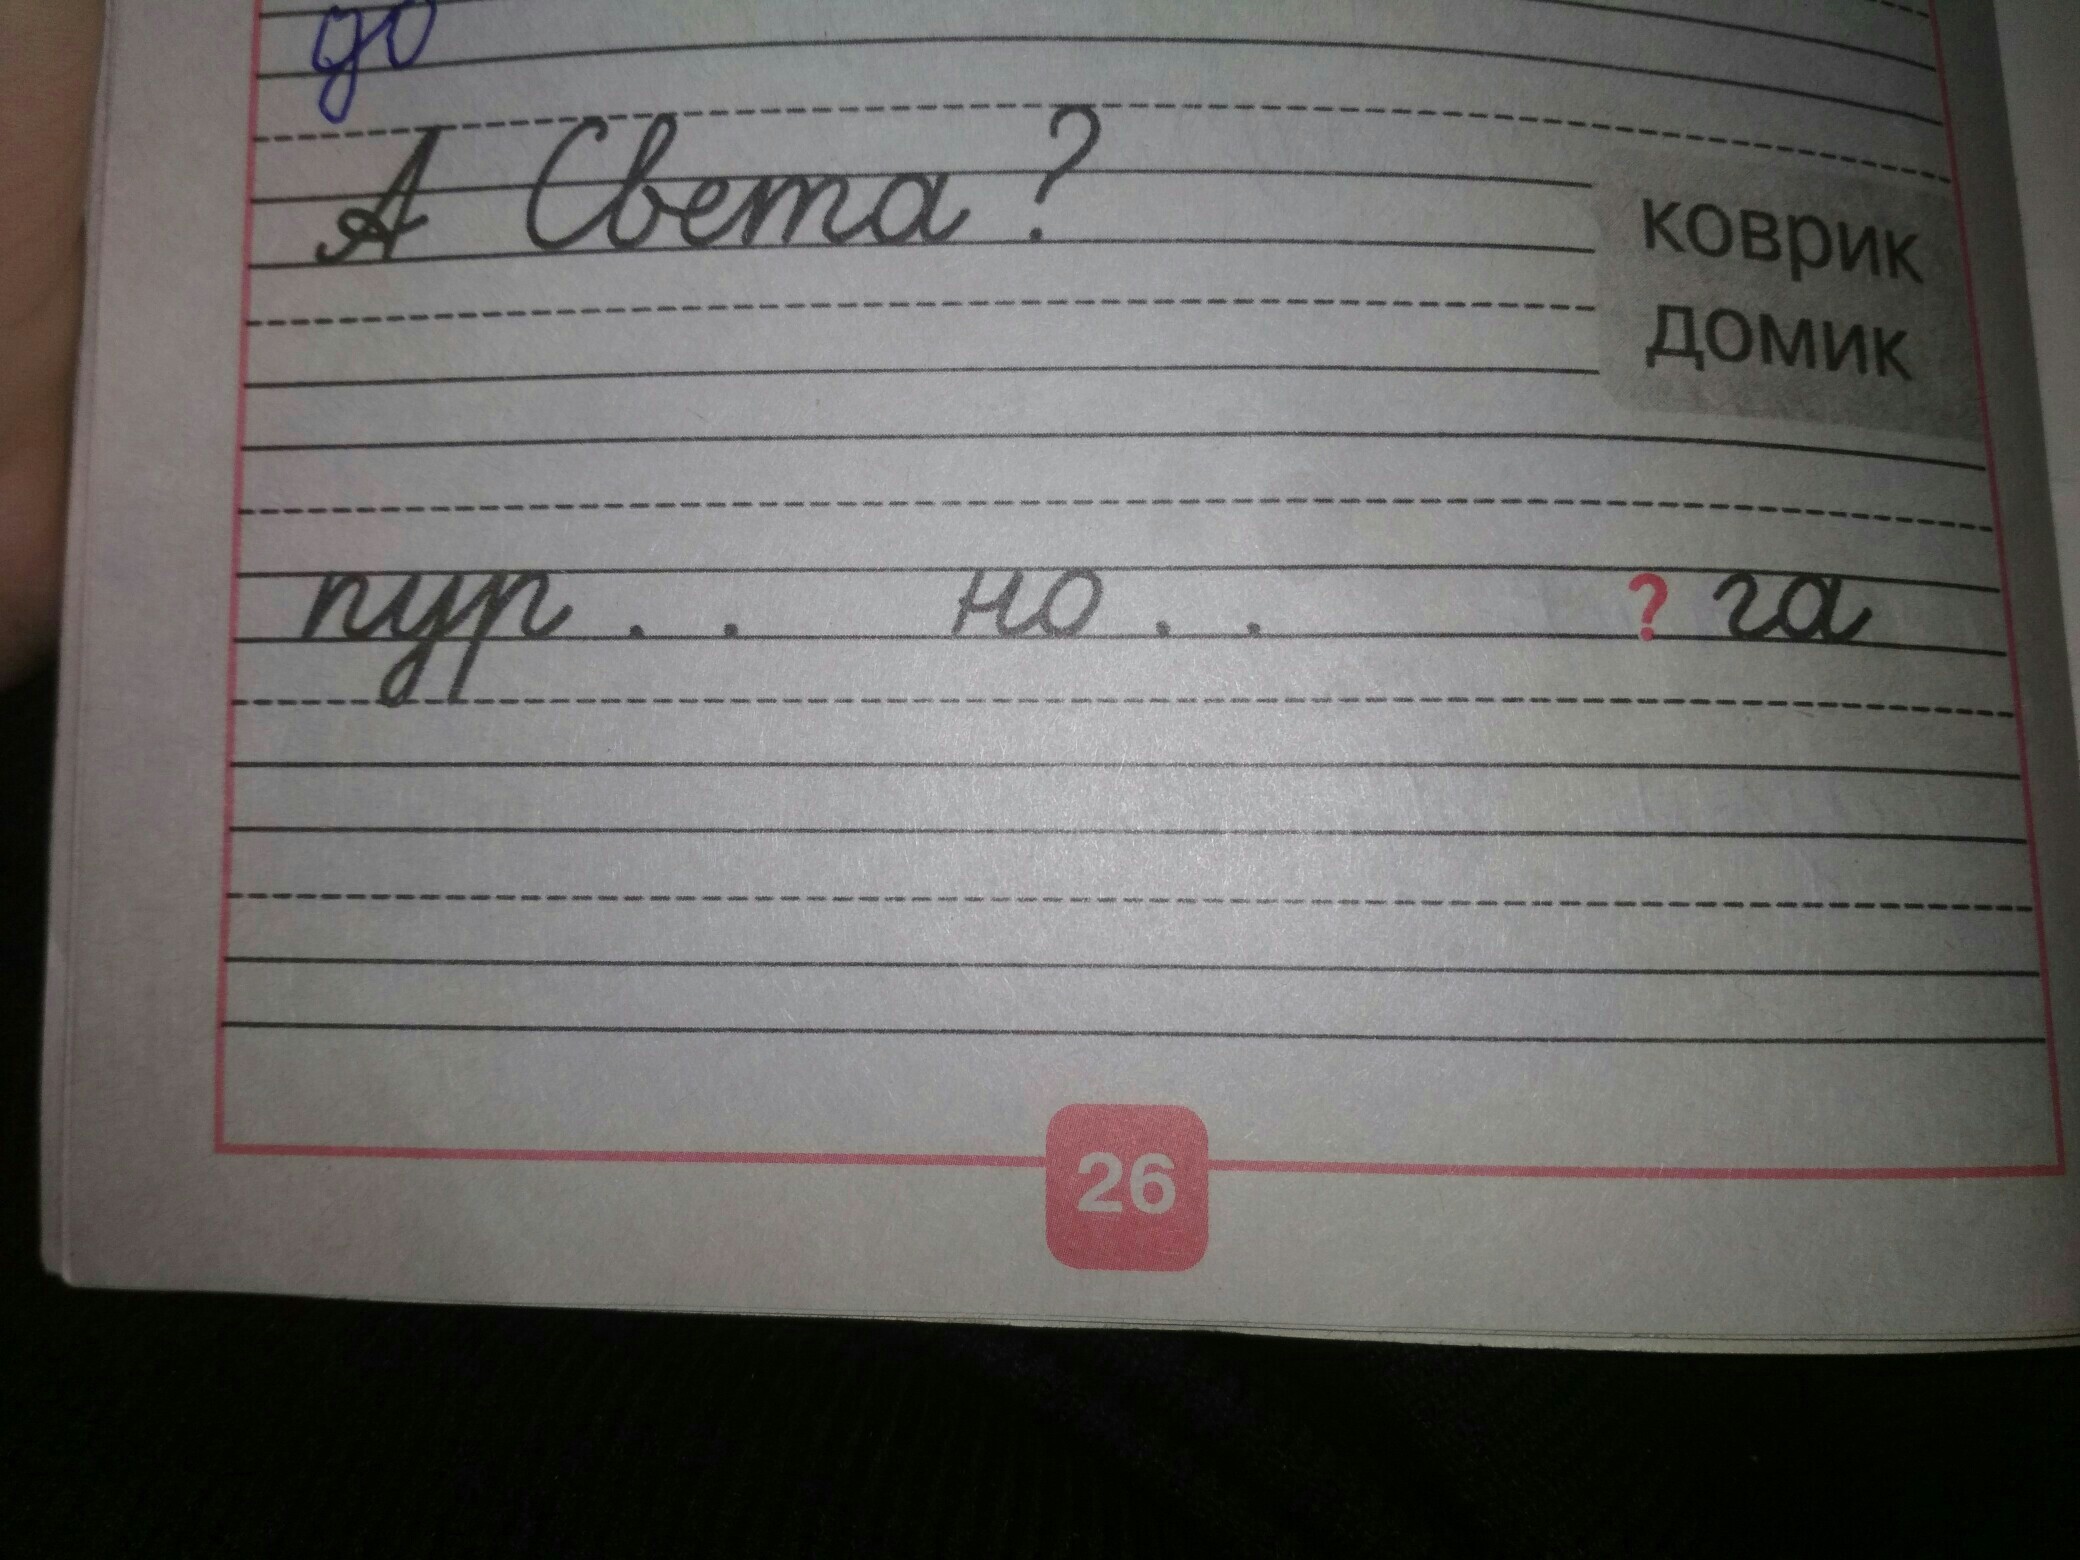 до
А Света?
коврик
домик
пур . . но . . ? га
26